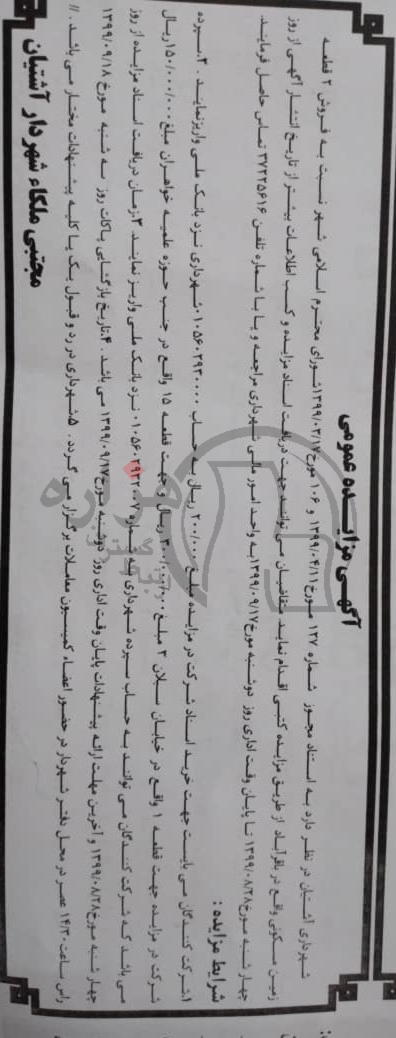 آگهی مزایده عمومی
شهرداری آشتیان در نظر دارد به استناد مجوز شماره ۱۲۷ مورخ ۱۳۹۹/۰۴/۱۱ و ۱۰۶ مورخ ۱۳۹۹/۰۳/۱۷ شورای محترم اسلامی شهر نسبت به فروش ۲ قطعه
زمین مسکونی واقع در باقرآباد از طریق مزایده کتبی اقدام نماید. متقاضیان می توانند جهت دریافت اسناد مزایده و کسب اطلاعات بیشتر از تاریخ انتشار آگهی از روز
چهارشنبه مورخ ۱۳۹۹/۰۸/۲۸ تا پایان وقت اداری روز دوشنبه مورخ ۱۳۹۹/۰۹/۱۷ به واحد امور مالی شهرداری مراجعه و یا با شماره تلفن ۳۷۲۲۵۶۱۶ تماس حاصل فرمایند.
شرایط مزایده :
۱. شرکت کنندگان می بایست جهت خرید اسناد شرکت در مزایده مبلغ ۲۰۰/۰۰۰ ریال به حساب شهرداری نزد بانک ملی واریز نمایند. ۲. سپرده
شرکت در مزایده جهت قطعه ۱ واقع در خیابان سبلان ۳ مبلغ ریال و جهت قطعه ۱۵ واقع در جنب حوزه علمیه خواهران مبلغ ۱۵۰/۰۰۰/۰۰۰ ریال
می باشد که شرکت کنندگان می توانند به حساب سپرده شهرداری به شماره نزد بانک ملی واریز نمایند. ۳. زمان دریافت اسناد مزایده از روز
چهارشنبه مورخ ۱۳۹۹/۰۸/۲۸ و آخرین مهلت ارائه پیشنهادات پایان وقت اداری روز دوشنبه مورخ ۱۳۹۹/۰۹/۱۷ می باشد. ۴. تاریخ بازگشایی پاکات روز سه شنبه مورخ ۱۳۹۹/۰۹/۱۸
راس ساعت ۱۴/۳۰ عصر در محل دفتر شهردار در حضور اعضاء کمیسیون معاملات برگزار می گردد. ۵. شهرداری در رد و قبول یک یا کلیه پیشنهادات مختار می باشد. //
مجتبی ملکاء شهردار آشتیان